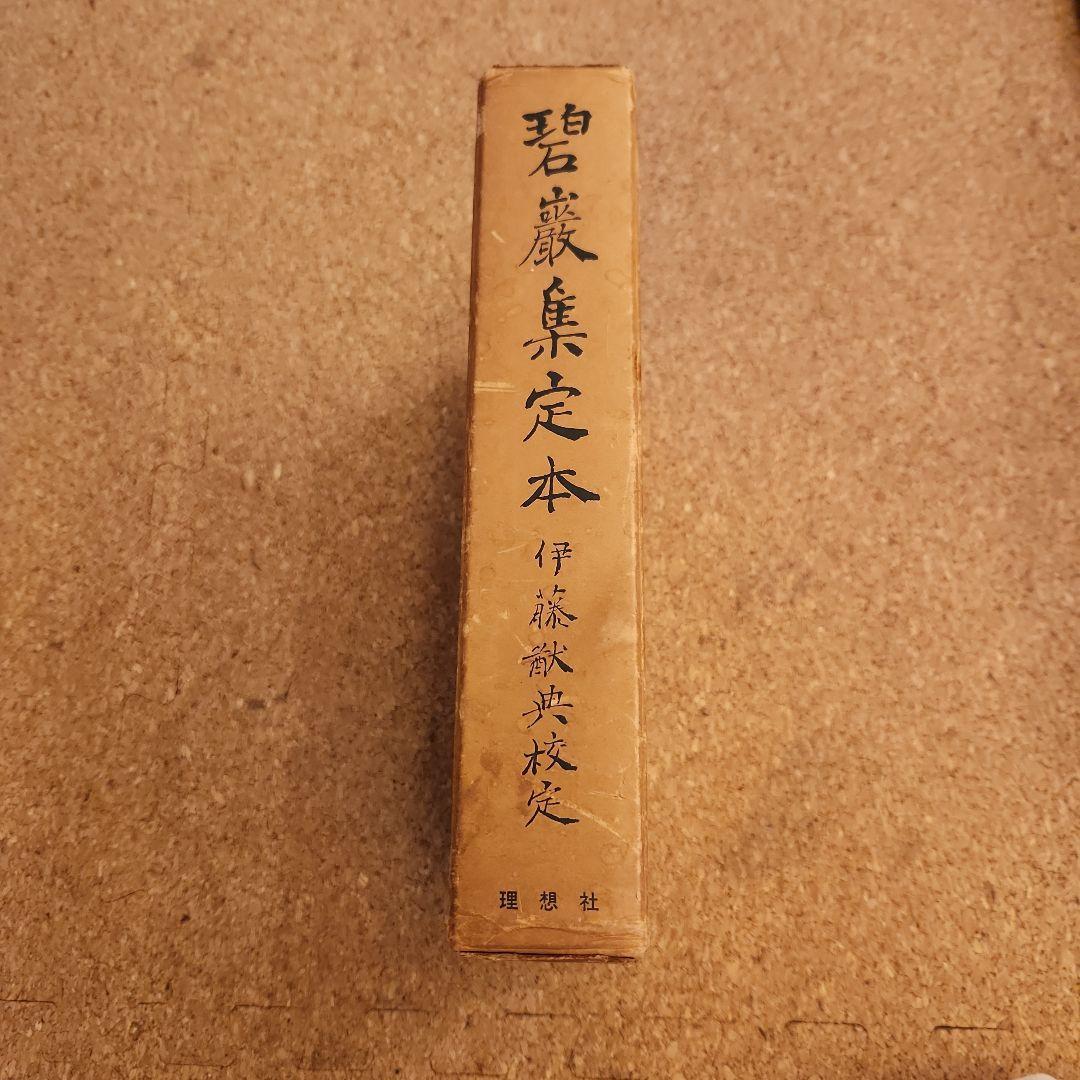 碧巖集定本
伊藤猷典校定
理想社